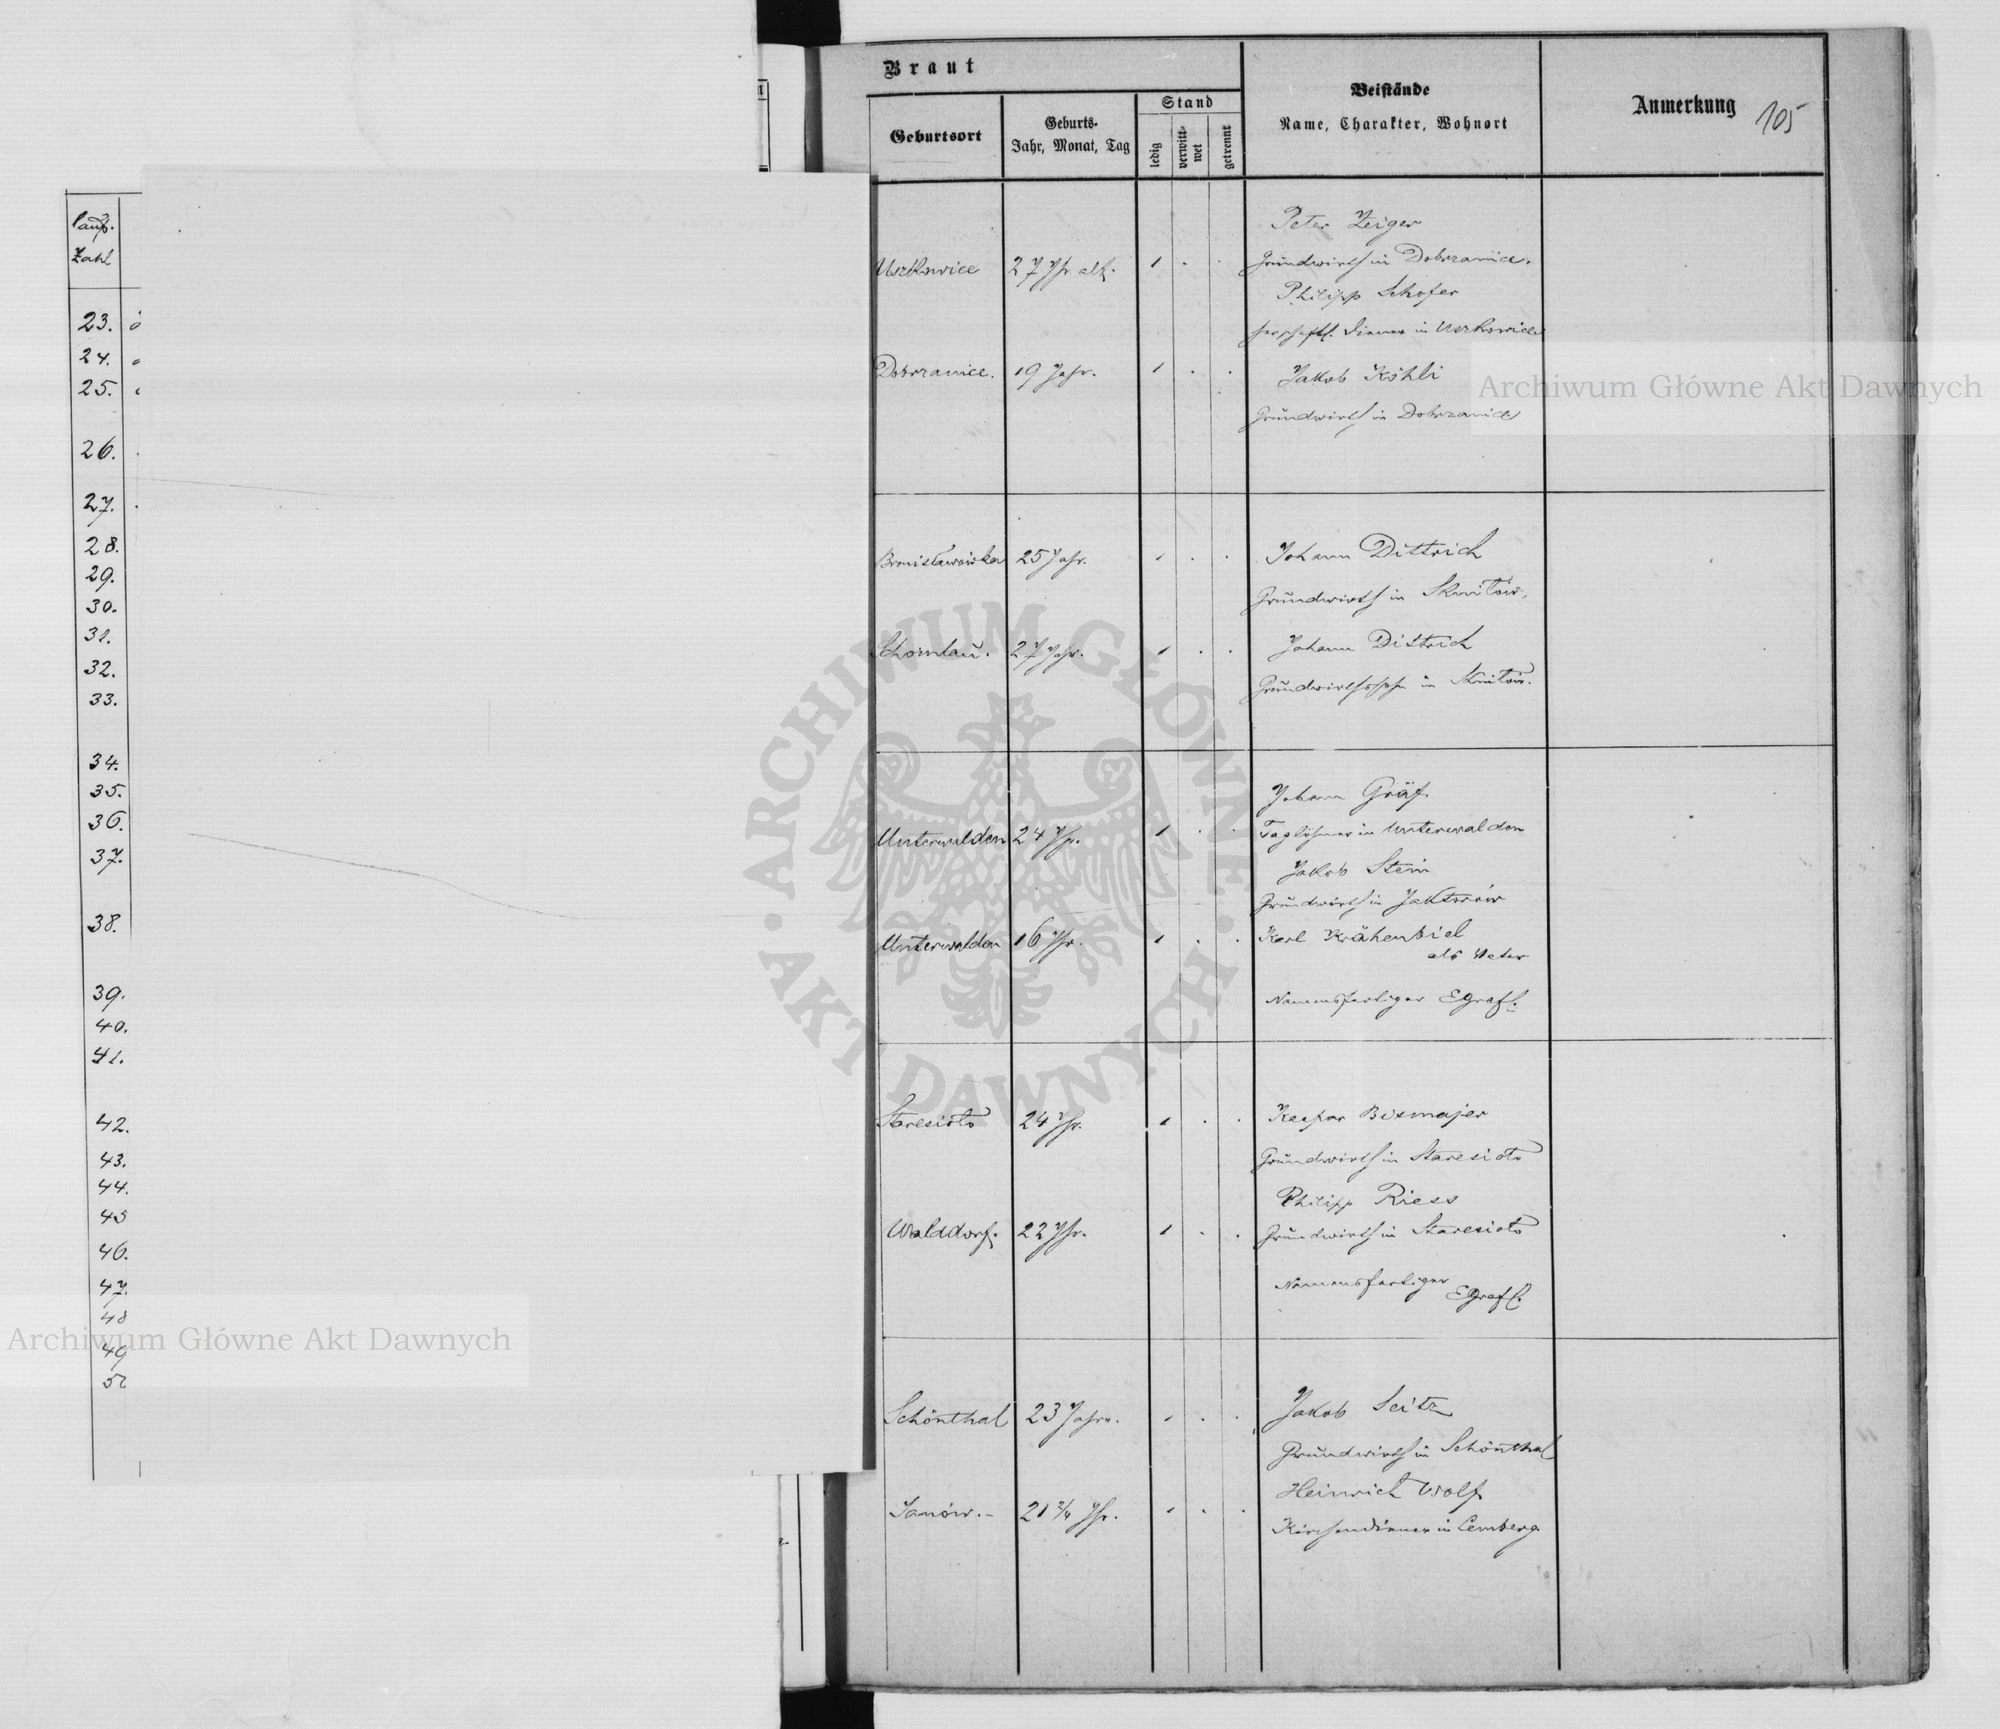 Braut
Geburtsort
Geburts-
Jahr, Monat, Tag
Stand
ledig
verwitt-
wet
getrennt
Beistände
Name, Charakter, Wohnort
Anmerkung
105
lauf.
Zahl
23.
24.
25.
26.
27.
28.
29.
30.
31.
32.
33.
34.
35.
36.
37.
38.
39.
40.
41.
42.
43.
44.
45
46.
47.
48
49
Uszkowice 27 Jhr alt. 1 . .
Peter Zeiger
Grundwirth in Dobrzanice.
Philipp Schofer
herschaftl. Diener in Uszkowice
Dobrzanice. 19 Jahr. 1 . .
Jakob Köhli
Grundwirth in Dobrzanice
Bronisławówka 25 Jahr. 1 . .
Johann Dittrich
Grundwirth in Sknitów.
27 Jahr. 1 . .
Johann Dittrich
Grundwirthssohn in Sknitów.
Unterwalden 24 Jhr. 1 . .
Johann Gräf
Taglöhner in Unterwalden
Jakob Stein
Grundwirth in Jaktorów
Unterwalden 16 Jhr. 1 . .
Karl Krähenbiel
als Vater
Namensfertiger EGraf
Staresioto 24 Jhr. 1 . .
Kaspar Bismajer
Grundwirth in Staresioto
Philipp Riess
Walddorf. 22 Jhr. 1 . .
Grundwirth in Staresioto
Namensfertiger EGraf
Schönthal 23 Jahre. 1 . .
Jakob Seitz
Grundwirth in Schönthal
Heinrich Wolf
Janów.- 21 3/4 Jhr. 1 . .
Kirchendiener in Lemberg
Archiwum Główne Akt Dawnych
· ARCHIWUM GŁÓWNE · AKT DAWNYCH
Archiwum Główne Akt Dawnych